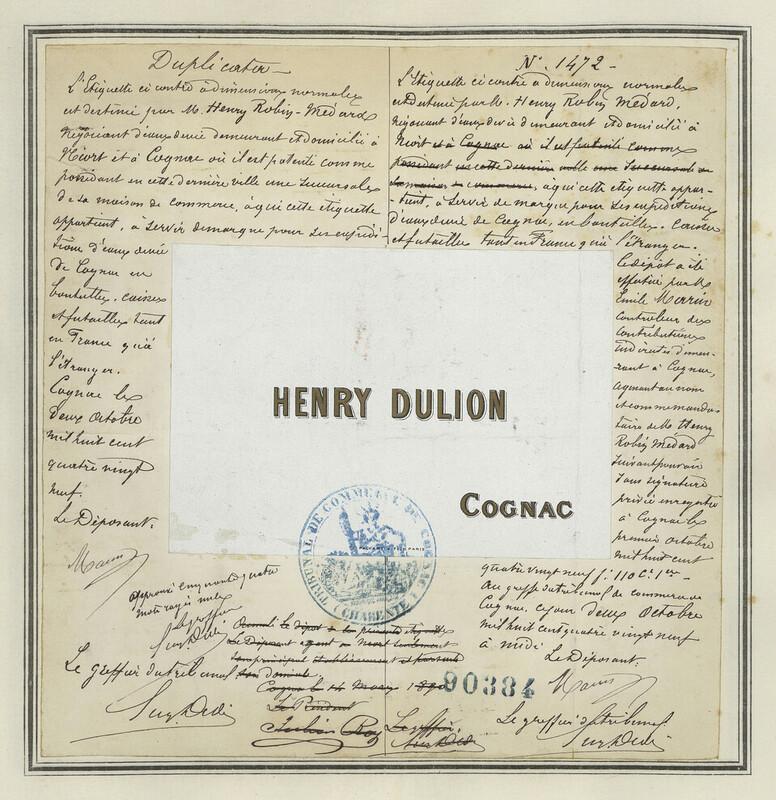 Duplicata
L'Etiquette ci contre à dimensions normales
est destiné par M. Henry Robin-Médard
Négociant d'eaux devie demeurant et domicilié à
Niort et à Cognac où il est patenté comme
possédant en cette dernière ville une Succursale
de sa maison de commerce, à qui cette étiquette
appartient, à servir de marque pour ses expédi-
tions d'eaux devie
de Cognac en
bouteilles, caisses
et futailles tant
en France qu'à
l'étranger.
Cognac les
deux octobre
mil huit cent
quatre vingt
neuf.
Le Déposant.
approuvé cinq quatre
mots rayés nuls
Le greffier
Le greffier du tribunal
N° 1472
L'Etiquette ci contre à dimensions normales
est destiné par M. Henry Robin Médard,
négociant d'eaux devie demeurant et domicilié à
Niort et à Cognac où il est patenté comme
possédant en cette dernière ville une Succursale de
sa maison de commerce, à qui cette etiquette appar-
tient, à servir de marque pour ses expéditions
d'eaux devie de Cognac, en bouteilles, caisses
et futailles tant en France qu'à l'étranger.
Le dépot a été
effectué par M.
Emile
controleur des
contributions
indirectes demeu-
rant à Cognac,
agissant au nom
et comme manda-
taire de M. Henry
Robin Médard
suivant pouvoir
sous signature
privée enregistré
à Cognac les
premier octobre
mil huit cent
quatre vingt neuf f: 110 C. 1er
Au greffe du tribunal de commerce de
Cognac, ce jour deux octobre
mil huit cent quatre vingt neuf
à midi
Le Déposant.
Le greffier du tribunal
HENRY DULION
COGNAC
TRIBUNAL DE COMMERCE DE COGNAC
(CHARENTE)
Annulé le dépot de la présente étiquette
Le Déposant ayant à Niort seulement
son principal établissement et portant
son domicile.
Cognac le 14 Mars 1890
Le Président
Le greffier,
90384